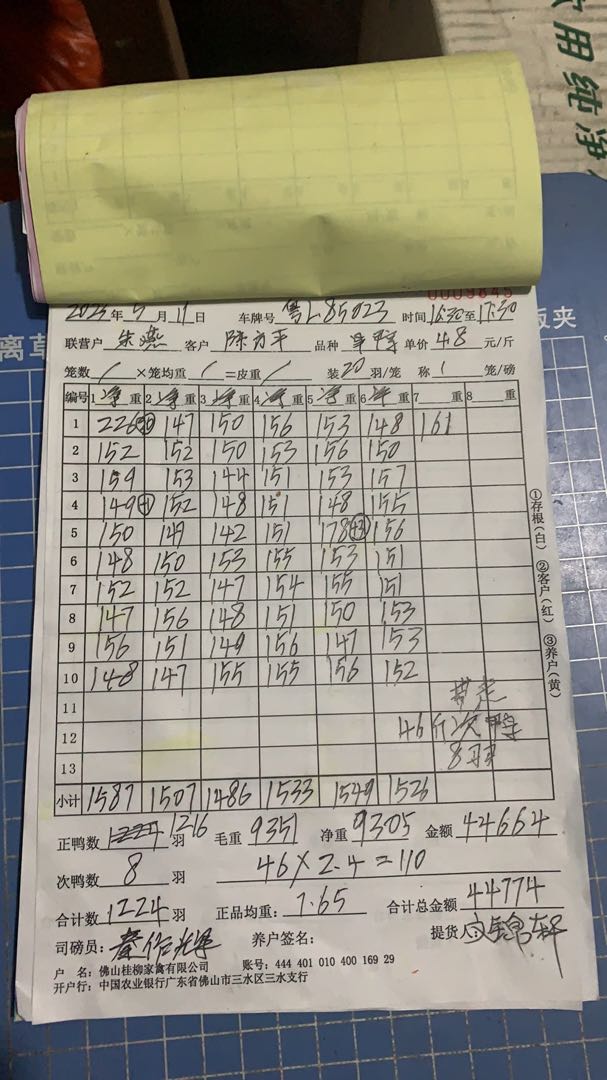 用纯净
0009845
2025年5月11日 车牌号 粤L85023 时间 16:30至17:30
联营户 朱燕 客户 陈方平 品种 单价 4.8 元/斤
笼数 / ×笼均重 / =皮重 / 装 20 羽/笼 称 1 笼/磅
编号 1 净重 2 净重 3 净重 4 净重 5 净重 6 净重 7 重 8 重
1 226 147 150 156 153 148 161
2 152 152 150 153 156 150
3 159 153 144 151 153 157
4 149 +1 152 148 151 148 155
5 150 149 142 151 178 +3 156
6 148 150 153 155 153 151
7 152 152 147 154 155 151
8 147 156 148 151 150 153
9 156 151 149 156 147 153
10 148 147 155 155 156 152
11 带走
12 46斤次鸭
13 8羽
小计 1587 1507 1486 1533 1549 1526
正鸭数 1224 1216 羽 毛重 9351 净重 9305 金额 44664
次鸭数 8 羽 46×2.4=110
合计数 1224 羽 正品均重: 7.65 合计总金额 44774
司磅员: 养户签名: 提货人
户 名: 佛山桂柳家禽有限公司 账号: 444 401 010 400 169 29
开户行: 中国农业银行广东省佛山市三水区三水支行
①存根(白) ②客户(红) ③养户(黄)
离
板夹